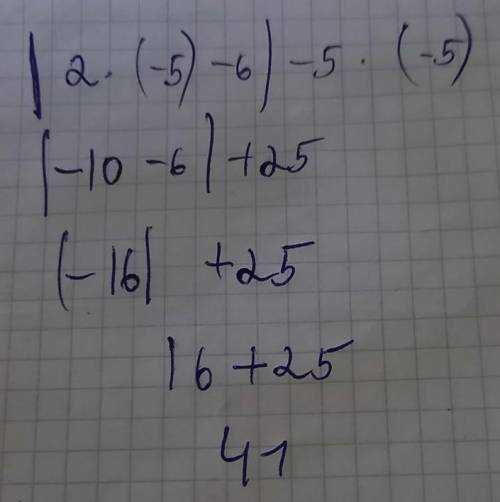 | 2 · (-5) - 6 | - 5 · (-5)
| -10 - 6 | + 25
(-16| + 25
16 + 25
41